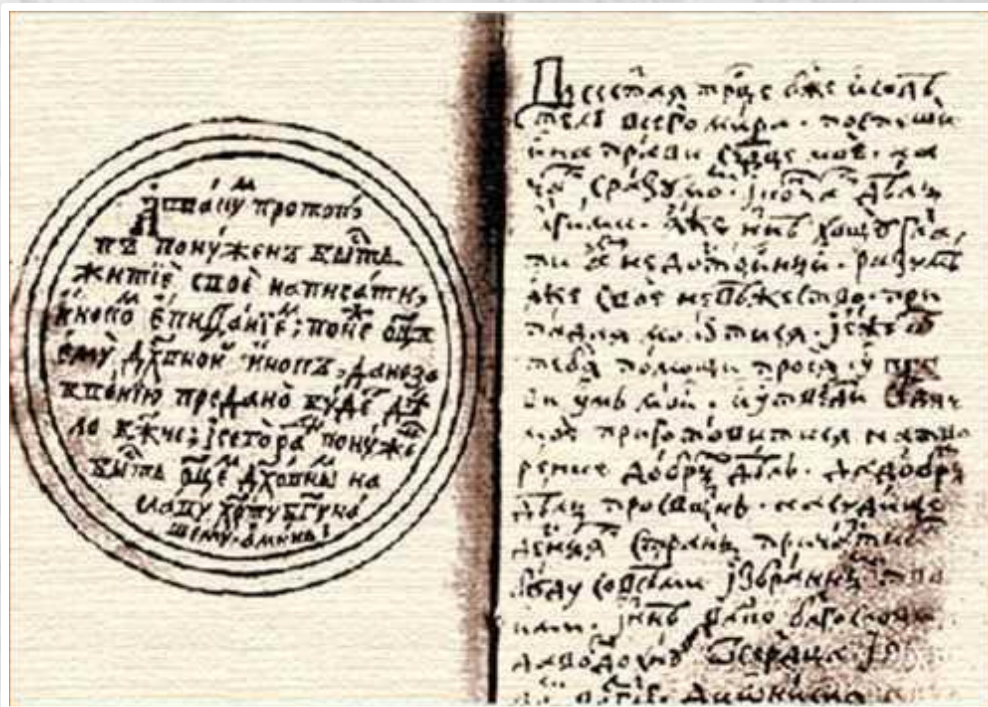 Аввакум протопо
пъ понуженъ бысть
житиѐ своѐ написати,
иноком Епифанием; понеж отцъ
ему̀ дх҃овной инокъ, да не за
бвению преданò буде дѣ
ло бж҃ие; и сего ради понуже
бысть отцем дх҃овны на
славу хр҃ту бг҃у на
шему. аминь:
Пресветая трц҃е бж҃е и содѣ
телю всего мира. поспеши
и направи се҃рдце моѐ. на
чати с разумо. и кончати дѣлы
ими. яже н҃нѣ хощу гл҃а
ти аз недостойный. разумѣ
я же своѐ невѣжество. при
падая молю ти ся. и еже от
тебя помощи прося. упра
ви умъ мой. и утверди се
моѐ приготовитися на тво
рение добры дѣлъ. да добры
дѣлы просвѣще. на судище
десныя страны причастни
буду со всѣми избранны тво
ими. и н҃нѣ вл҃ко благослови.
да воздохнув от сердца. и
дионисиа